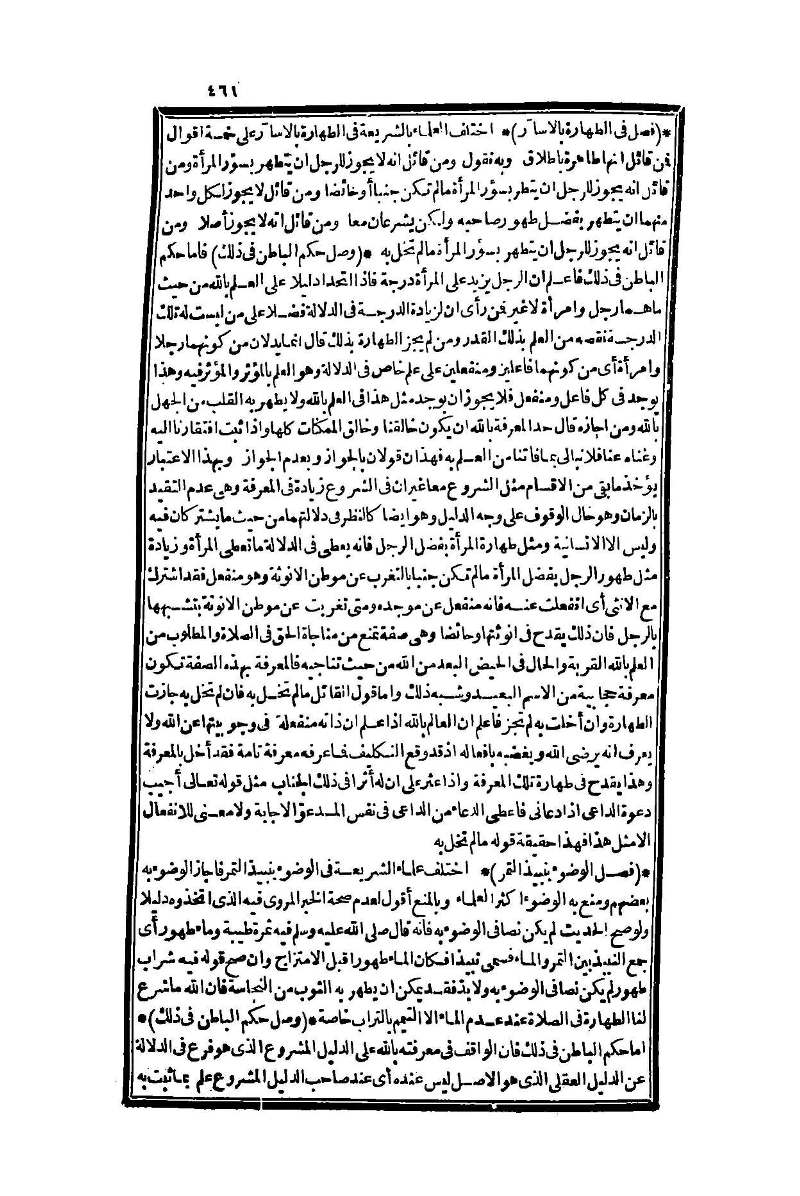 ٤٦١
*(فصل فى الطهارة بالاسآر)* اختلف العلماء بالشريعة فى الطهارة بالاسآر على خمسة اقوال
فمن قائل انها طاهرة باطلاق وبه نقول ومن قائل انه لا يجوز للرجل ان يتطهر بسؤر المرأة ومن
قائل انه يجوز للرجل ان يتطهر بسؤر المرأة مالم تكن جنبا أو حائضا ومن قائل لا يجوز لكل واحد
منهما ان يتطهر بفضل طهور صاحبه ولكن يشرعان معا ومن قائل انه لا يجوز أصلا ومن
قائل انه يجوز للرجل ان يتطهر بسؤر المرأة مالم تخل به *(وصل حكم الباطن فى ذلك) فاما حكم
الباطن فى ذلك فاعلم ان الرجل يزيد على المرأة درجة فاذا اتخذا دليلا على العلم بالله من حيث
ماهما رجل وامرأة لا غير فمن رأى ان لزيادة الدرجة فى الدلالة فضلا على من ليست له تلك
الدرجة نقصه من العلم بذلك القدر ومن لم يجز الطهارة بذلك قال انما يدلان من كونهما رجلا
وامرأة أى من كونهما فاعلين ومنفعلين على علم خاص فى الدلالة وهو العلم بالمؤثر والمؤثر فيه وهذا
يوجد فى كل فاعل ومنفعل فلا يجوز ان يوجد مثل هذا فى العلم بالله ولا يطهر به القلب من الجهل
بالله ومن اجازه قال حد المعرفة بالله ان يكون خالقنا وخالق الممكنات كلها واذا ثبت افتقارنا اليه
وغناه عنا فلا نبالى بما فاتنا من العلم به فهذان قولان بالجواز وبعدم الجواز وبهذا الاعتبار
يؤخذ ما بقى من الاقسام مثل الشروع معا غير ان فى الشروع زيادة فى المعرفة وهى عدم التقيد
بالزمان وهو حال الوقوف على وجه الدليل وهو ايضا كالنظر فى دلالتهما من حيث ما يشتركان فيه
وليس الا الانسانية ومثل طهارة المرأة بفضل الرجل فانه يعطى فى الدلالة ما تعطى المرأة وزيادة
مثل طهور الرجل بفضل المرأة مالم تكن جنبا بالتغرب عن موطن الانوثة وهو منفعل فقد اشترك
مع الانثى أى انفعلت عنه فانه منفعل عن موجده ومتى تغربت عن موطن الانوثة بتشبهها
بالرجل فان ذلك يقدح فى انوثتها وحائضا وهى صفة تمنع من مناجاة الحق فى الصلاة والمطلوب من
العلم بالله القربة والحال فى الحيض البعد من الله من حيث تناجيه فالمعرفة بهذه الصفة تكون
معرفة حجابية من الاسم البعيد وشبه ذلك واما قول القائل مالم تخل به فان لم تخل به جازت
الطهارة وان أخلت به لم تجز فاعلم ان العالم بالله اذا علم ان ذاته منفعلة فى وجوبيتها عن الله ولا
يعرف انه يرضى الله ويغضبه بافعاله اذ قد وقع التكليف فما عرفه معرفة تامة فقد أخل بالمعرفة
وهذا يقدح فى طهارة تلك المعرفة واذا عثر على ان له أثرا فى ذلك الجناب مثل قوله تعالى أجيب
دعوة الداعى اذا دعانى فاعطى الدعاء من الداعى فى نفس المدعو الاجابة ولا معنى للانفعال
الا مثل هذا فهذا حقيقة قوله مالم تخل به
*(فصل الوضوء بنبيذ التمر)* اختلف علماء الشريعة فى الوضوء بنبيذ التمر فاجاز الوضوء به
بعضهم ومنع به الوضوء اكثر العلماء وبالمنع أقول لعدم صحة الخبر المروى فيه الذى اتخذوه دليلا
ولو صح الحديث لم يكن نصا فى الوضوء به فانه قال صلى الله عليه وسلم فيه تمرة طيبة وماء طهور أى
جمع النبيذ بين التمر والماء فسمى نبيذا فكان الماء طهورا قبل الامتزاج وان صح قوله فيه شراب
طهور لم يكن نصا فى الوضوء به ولا بد فقد يمكن ان يطهر به الثوب من النجاسة فان الله ما شرع
لنا الطهارة فى الصلاة عند عدم الماء الا التيمم بالتراب خاصة *(وصل حكم الباطن فى ذلك)*
اما حكم الباطن فى ذلك فان الواقف فى معرفته بالله على الدليل المشروع الذى هو فرع فى الدلالة
عن الدليل العقلى الذى هو الاصل ليس عنده أى عند صاحب الدليل المشروع علم بما ثبت به